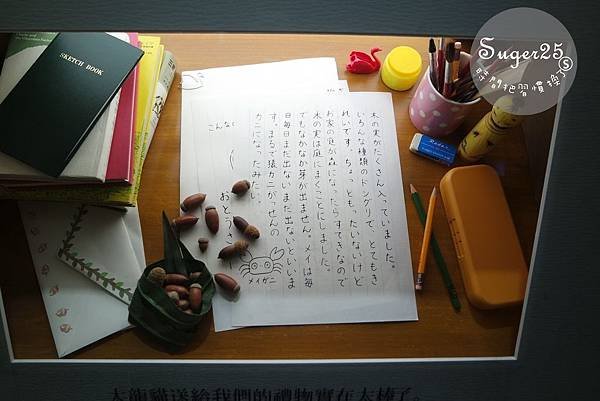 SKETCH BOOK
木の実がたくさん入っていました。
いろんな種類のドングリで、とてもき
れいです。ちょっともったいないけど
お家の庭が森になったらすてきなので
木の実は庭にまくことにしました。
でもなかなか芽が出ません。メイは毎
日毎日まだ出ないまだ出ないといいま
す。まるで猿カニがっせんの
カニになったみたい。
メイガニ
こんな
おとうさ
Suger25
時間把習慣換了
大龍貓送給我們的禮物實在太棒了。